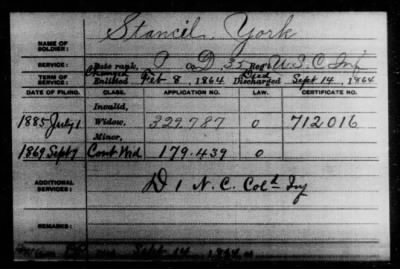 Stancil York
NAME OF SOLDIER:
SERVICE: Late rank, P Co. D, 35 Reg't U.S.C. Inf
TERM OF SERVICE: Enlisted Feb 8, 1864 Died Discharged Sept 14, 1864
DATE OF FILING. CLASS. APPLICATION NO. LAW. CERTIFICATE NO.
Invalid,
1885 July 1 Widow, 329.787 0 712016
Minor,
1869 Sept 7 Cont Md 179.439 0
ADDITIONAL SERVICES: D 1 N.C. Cold Inf
REMARKS:
Sept 14